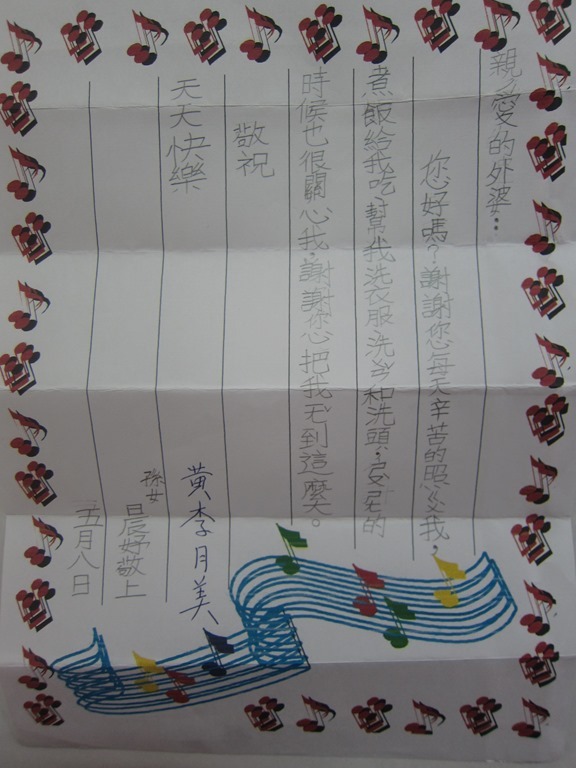 親愛的外婆：
您好嗎？謝謝您每天辛苦的照我，
煮飯給我吃、幫我洗衣服、洗和洗頭，受的
時候也很關心我，謝謝您把我到這麼大。
敬祝
天天快樂
黃李月美
孫女
晨妤敬上
五月八日